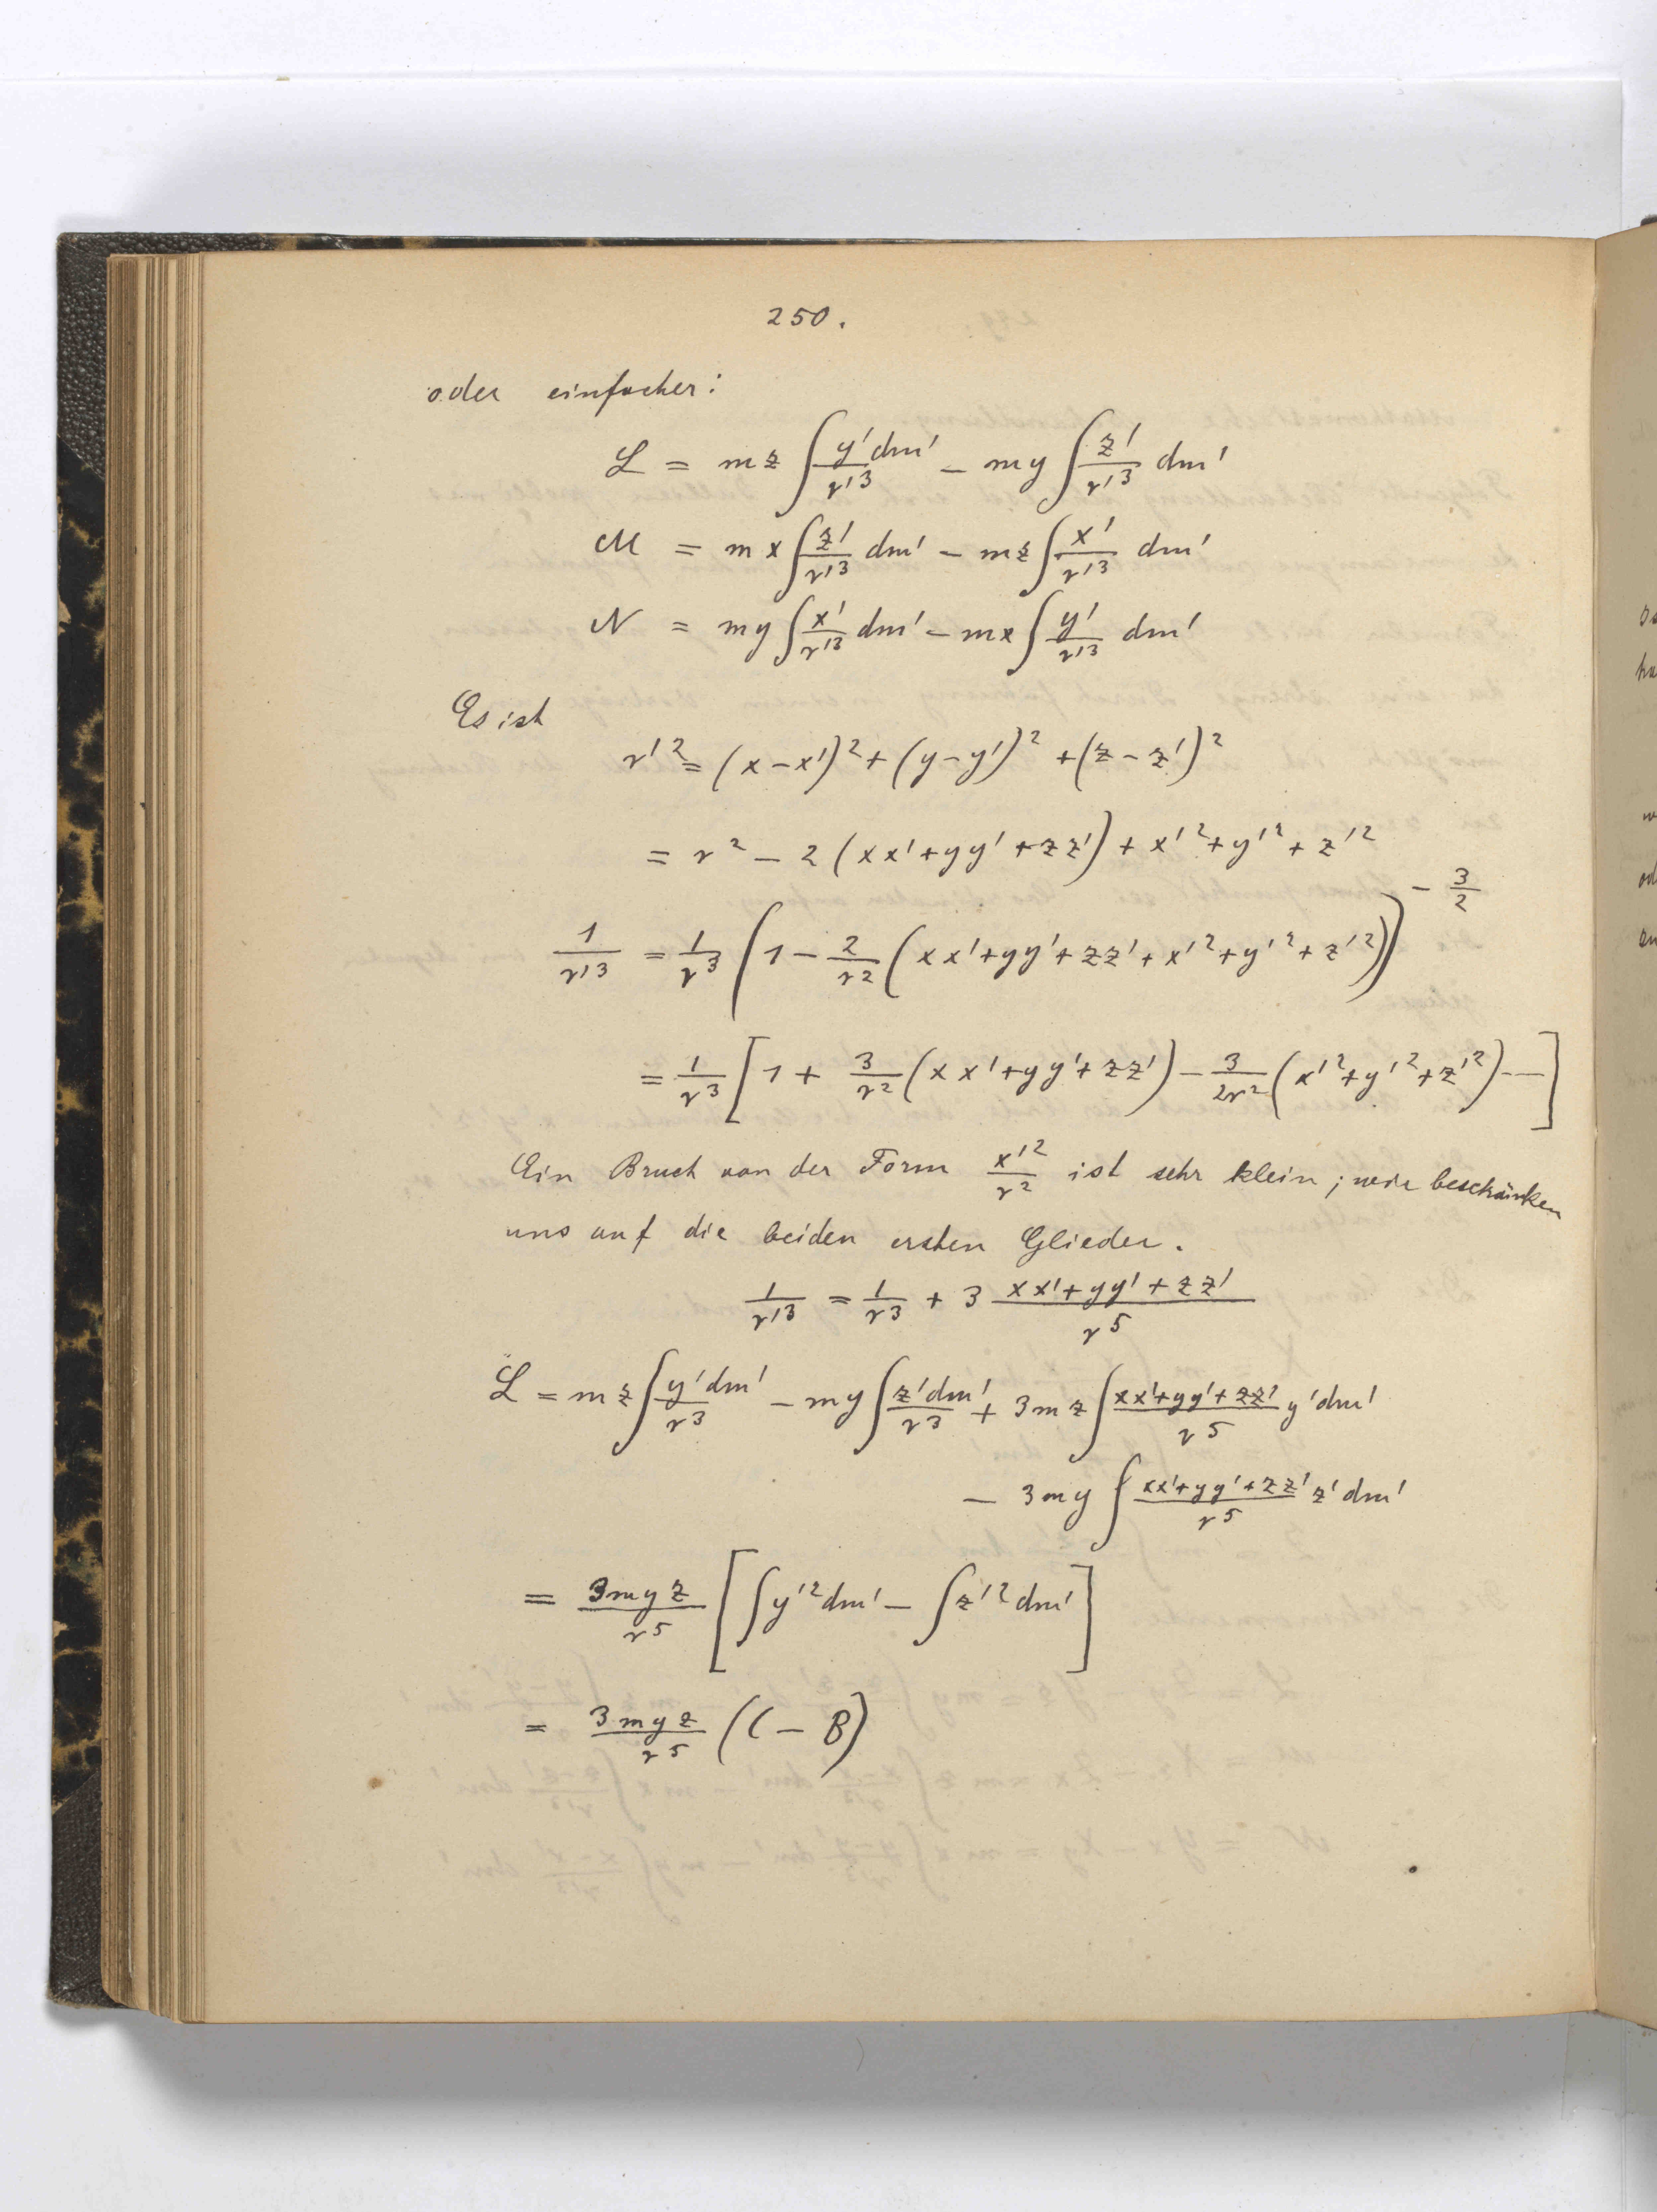 250.
oder einfacher:
L = mz ∫ y'dm'/r'³ − my ∫ z'/r'³ dm'
M = mx ∫ z'/r'³ dm' − mz ∫ x'/r'³ dm'
N = my ∫ x'/r'³ dm' − mx ∫ y'/r'³ dm'
Es ist
r'² = (x−x')² + (y−y')² + (z−z')²
= r² − 2 (xx'+yy'+zz') + x'²+y'²+z'²
1/r'³ = 1/r³ (1 − 2/r² (xx'+yy'+zz'+x'²+y'²+z'²))^(−3/2)
= 1/r³ [1 + 3/r² (xx'+yy'+zz') − 3/2r² (x'²+y'²+z'²) −−]
Ein Bruch von der Form x'²/r² ist sehr klein; wir beschränken
uns auf die beiden ersten Glieder.
1/r'³ = 1/r³ + 3 xx'+yy'+zz'/r⁵
L = mz ∫ y'dm'/r³ − my ∫ z'dm'/r³ + 3mz ∫ xx'+yy'+zz'/r⁵ y'dm'
− 3my ∫ xx'+yy'+zz'/r⁵ z'dm'
= 3myz/r⁵ [∫ y'²dm' − ∫ z'²dm']
= 3myz/r⁵ (C − B)